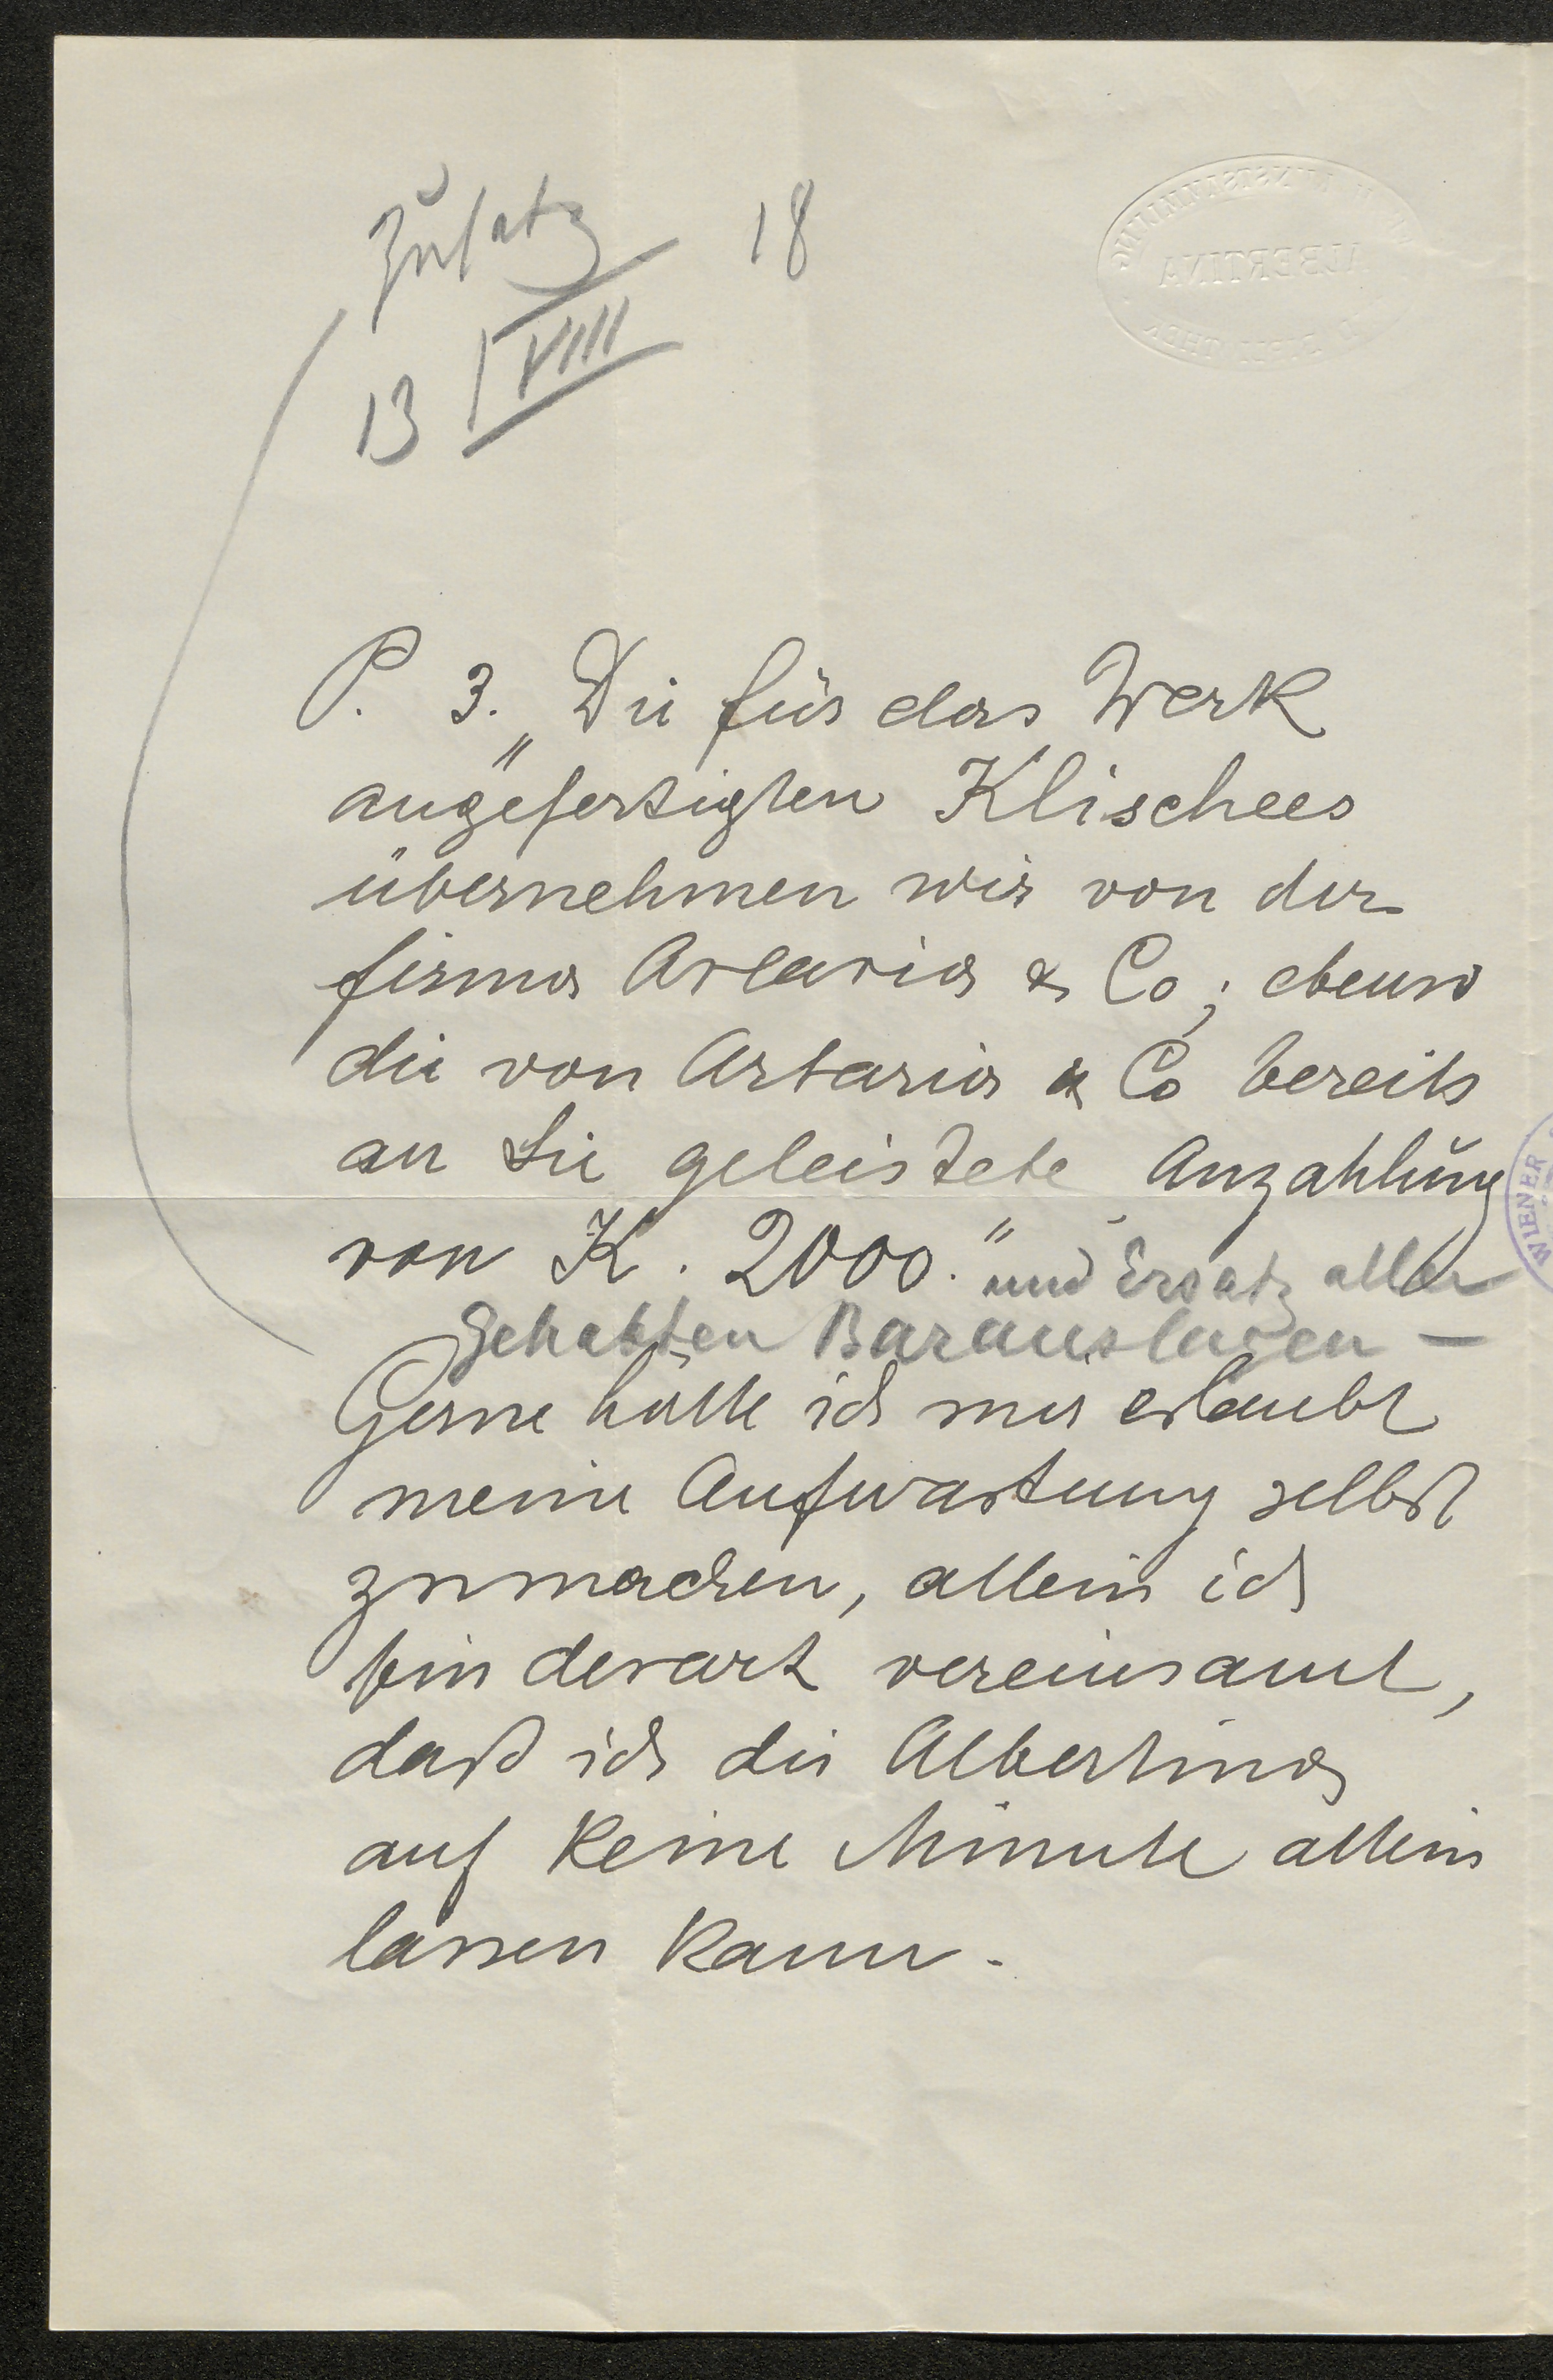 Zusatz 18
13/VIII
ALBERTINA
P. 3. „Die für das Werk
angefertigten Klischees
übernehmen wir von der
firma Artaria & Co; ebenso
die von Artaria & Co bereits
an Sie geleistete Anzahlung
WIENER
von K. 2000." und Ersatz aller
gehabten Barauslagen —
Gerne hätte ich mir erlaubt
meine Aufwartung selbst
zumachen, allein ich
bin derart vereinsamt,
daß ich die Albertina
auf keine Minute allein
lassen kann.